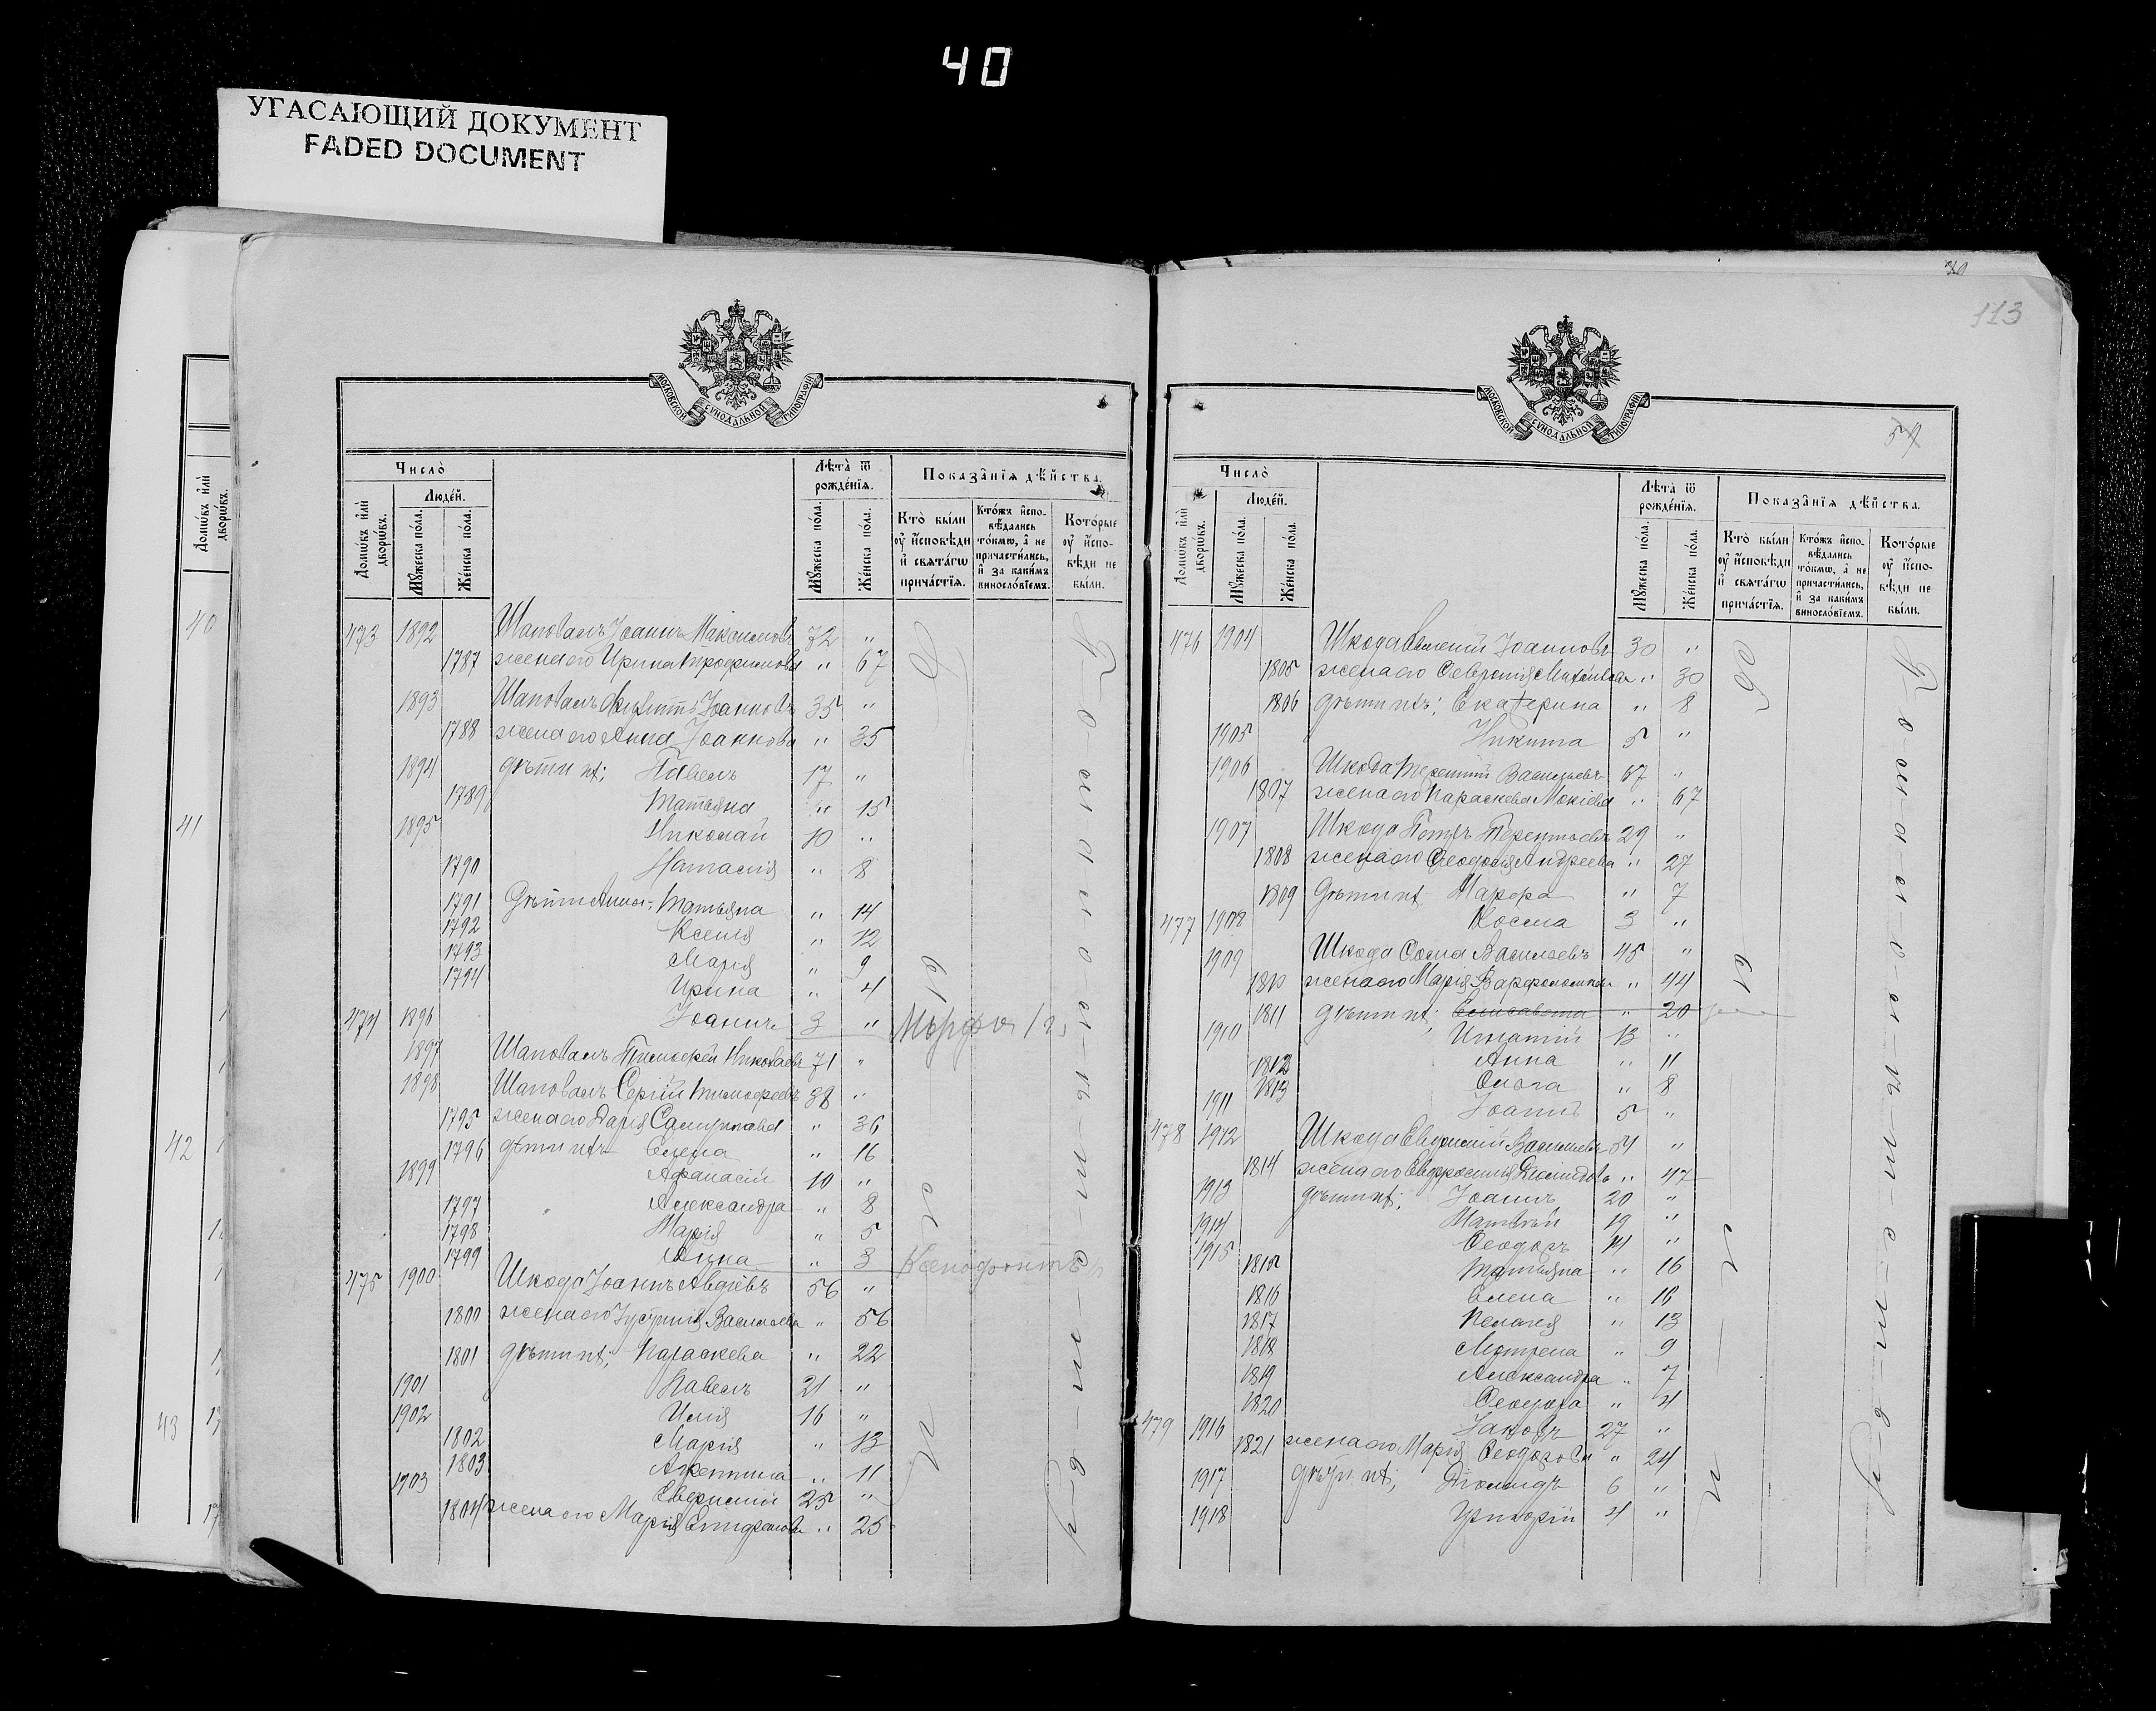 40
УГАСАЮЩИЙ ДОКУМЕНТ
FADED DOCUMENT
40
41
42
43
МОСКОВСКОЙ СѴНОДАЛЬНОЙ ТИПОГРАФІИ
Число̀
Людéй.
Лѣ́та ѿ рождéнїѧ.
Показа̑нїѧ дѣ́йства.
Домѡ́въ и҆лѝ дворѡ́въ.
Мꙋ́жеска по́ла.
Же́нска по́ла.
Мꙋ́жеска по́ла.
Же́нска по́ла.
Кто̀ бы́ли ᲂу҆ и҆́сповѣди и҆ свѧта́гѡ прича́стїѧ.
Кто́жъ и҆спо- вѣ́дались то́кмѡ, а҆ не причасти́лись, и҆ за каки́мъ винослові́емъ.
Кото́рые ᲂу҆ и҆́спо- вѣди не бы́ли.
473 1892 Шаповалъ Іоаннъ Максимовъ 72 "
1787 жена его Ирина Трофимова " 67
1893 Шаповалъ Іоанновъ 35 "
1788 жена его Анна Іоаннова " 35
1894 дѣти ихъ: Павелъ 17 "
1789 Татьяна " 15
1895 Николай 10 "
1790 Наталія " 8
1791 Дѣти Анны: Татьяна " 14
1792 Ксенія " 12
1793 Марія " 9
1794 Ирина " 4
474 1896 Іоаннъ 3 " Марфа 1 г.
1897 Шаповалъ Тимофей Николаевъ 71 "
1898 Шаповалъ Сергій Тимофеевъ 38 "
1795 жена его Дарія " 36
1796 дѣти ихъ Елена " 16
1899 Афанасій 10 "
1797 Александра " 8
1798 Марія " 5
1799 Анна " 3 Ксенофонтъ
475 1900 Шкода Іоаннъ Авдіевъ 56 "
1800 жена его Іустинія Васильева " 56
1801 дѣти ихъ; Параскева " 22
1901 Павелъ 21 "
1902 Илія 16 "
1802 Марія " 13
1803 Агрипина " 11
1903 Евфимій 25 "
1804 жена его Марія " 25
30
113
54
МОСКОВСКОЙ СѴНОДАЛЬНОЙ ТИПОГРАФІИ
Число̀
Людéй.
Лѣ́та ѿ рождéнїѧ.
Показа̑нїѧ дѣ́йства.
Домѡ́въ и҆лѝ дворѡ́въ.
Мꙋ́жеска по́ла.
Же́нска по́ла.
Мꙋ́жеска по́ла.
Же́нска по́ла.
Кто̀ бы́ли ᲂу҆ и҆́сповѣди и҆ свѧта́гѡ прича́стїѧ.
Кто́жъ и҆спо- вѣ́дались то́кмѡ, а҆ не причасти́лись, и҆ за каки́мъ винослові́емъ.
Кото́рые ᲂу҆ и҆́спо- вѣди не бы́ли.
476 1904 Шкода Іоанновъ 30 "
1805 жена его " 30
1806 дѣти ихъ; Екатерина " 8
1905 Никита 5 "
1906 Шкода Терентій Васильевъ 67 "
1807 жена его Параскева Мокіева " 67
1907 Шкода Петръ Терентьевъ 29 "
1808 жена его Феодосія Андреева " 27
1809 дѣти ихъ Марфа " 7
477 1908 Косма 3 "
1909 Шкода Фома Васильевъ 45 "
1810 жена его Марія " 44
1811 дѣти ихъ; Елисавета " 20
1910 Игнатій 13 "
1812 Анна " 11
1813 Ольга " 8
1911 Іоаннъ 5 "
478 1912 Шкода Евфимій Васильевъ 54 "
1814 жена его Евфросинія " 47
1913 дѣти ихъ; Іоаннъ 20 "
1914 Матвѣй 19 "
1915 Феодоръ 14 "
1815 Татьяна " 16
1816 Елена " 16
1817 Пелагія " 13
1818 Мотрена " 9
1819 Александра " 7
1820 Феодора " 4
479 1916 Іаковъ 27 "
1821 жена его Марія Феодорова " 24
1917 дѣти ихъ; 6 "
1918 Григорій 4 "